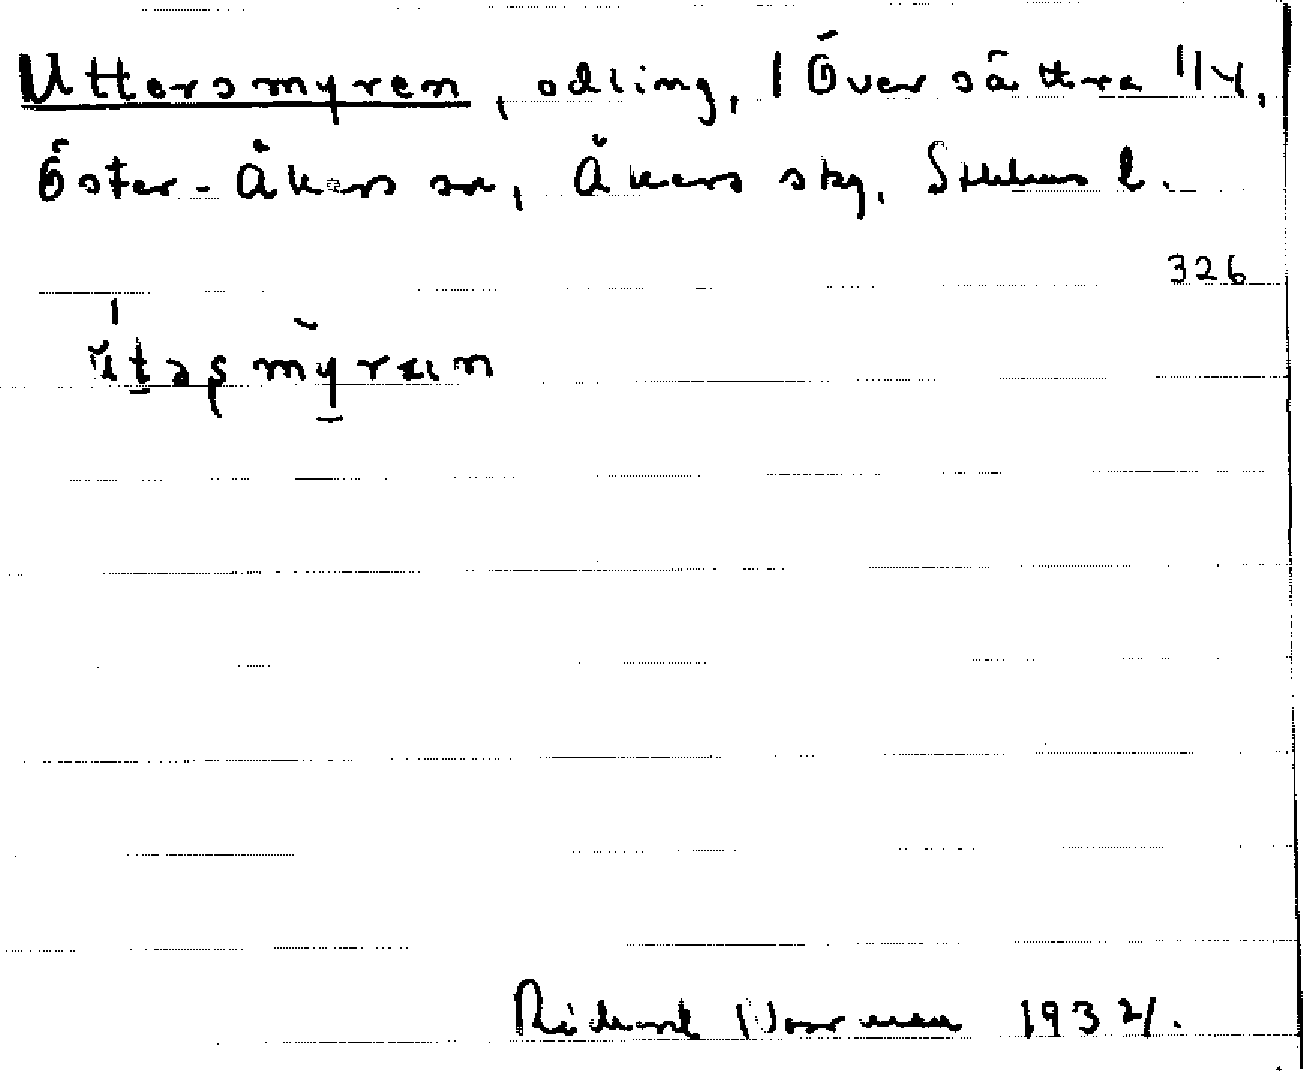 Uttersmyren, odling, i Översättra 1/4,
Öster-Åkers sn, Åkers skg, Sthlms l.
326
ŭtaşmy̆ræn
Rickard Norrman 1932.